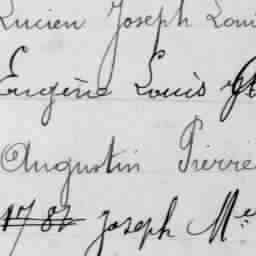 Lucien Joseph Loui
Eugène Louis
Augustin Pierre
1782 Joseph Me